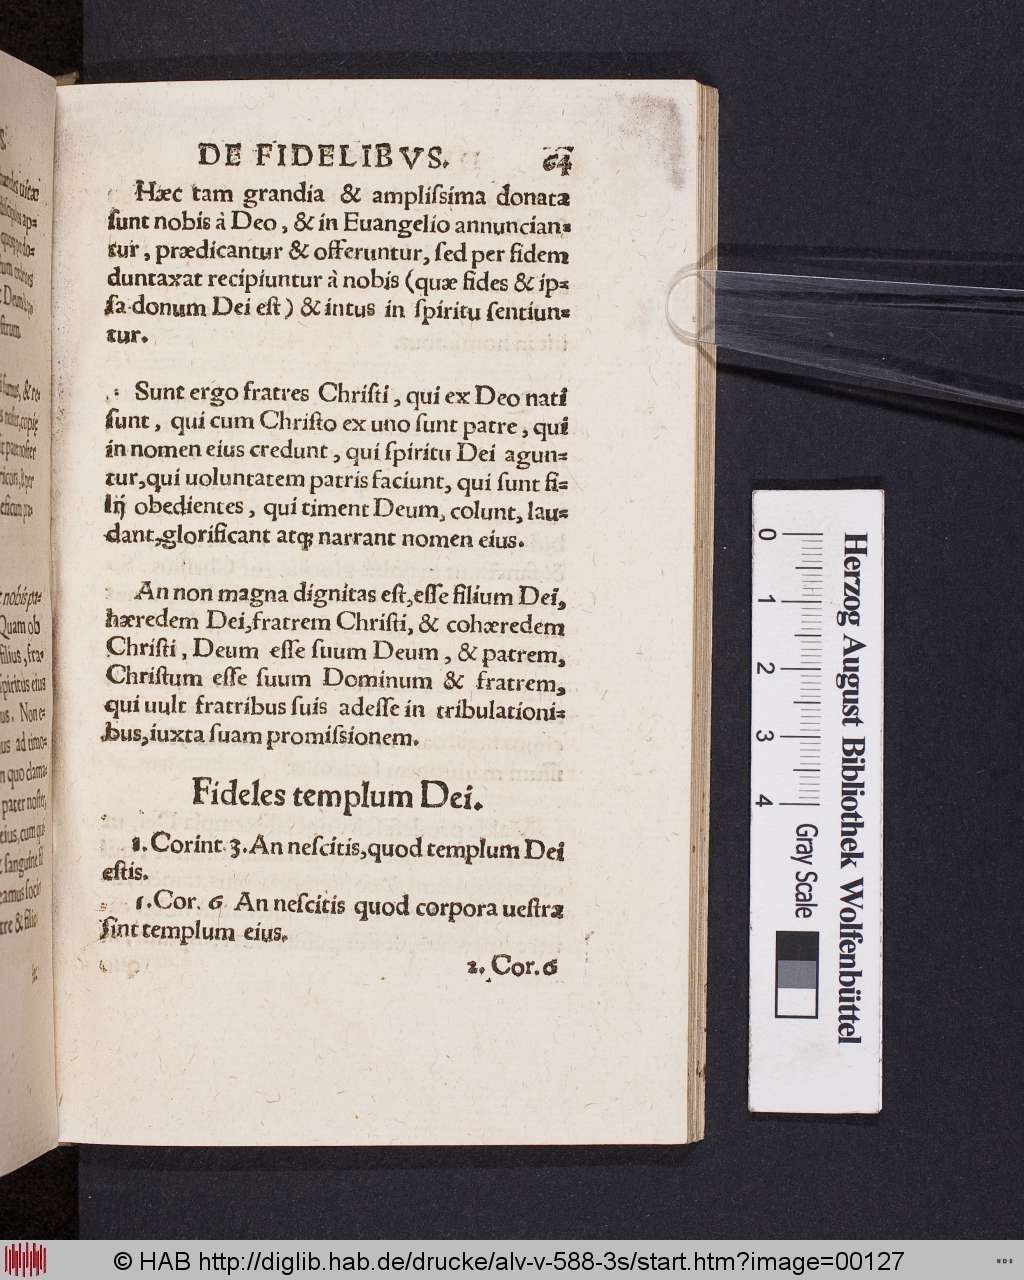 DE FIDELIBVS. 64
Hæc tam grandia & ampliſsima donatæ
ſunt nobis à Deo, & in Euangelio annuncian-
tur, prædicantur & offeruntur, ſed per fidem
duntaxat recipiuntur à nobis (quæ fides & ip-
ſa donum Dei eſt) & intus in ſpiritu ſentiun-
tur.
Sunt ergo fratres Chriſti, qui ex Deo nati
ſunt, qui cum Chriſto ex uno ſunt patre, qui
in nomen eius credunt, qui ſpiritu Dei agun-
tur, qui uoluntatem patris faciunt, qui ſunt fi-
lij obedientes, qui timent Deum, colunt, lau-
dant, glorificant atq; narrant nomen eius.
An non magna dignitas eſt, eſſe filium Dei,
hæredem Dei, fratrem Chriſti, & cohæredem
Chriſti, Deum eſſe ſuum Deum, & patrem,
Chriſtum eſſe ſuum Dominum & fratrem,
qui uult fratribus ſuis adeſſe in tribulationi-
bus, iuxta ſuam promiſsionem.
Fideles templum Dei.
1. Corint. 3. An neſcitis, quod templum Dei
eſtis.
1. Cor. 6 An neſcitis quod corpora ueſtra
ſint templum eius.
2. Cor. 6
Herzog August Bibliothek Wolfenbüttel
0 1 2 3 4 Gray Scale
© HAB http://diglib.hab.de/drucke/alv-v-588-3s/start.htm?image=00127